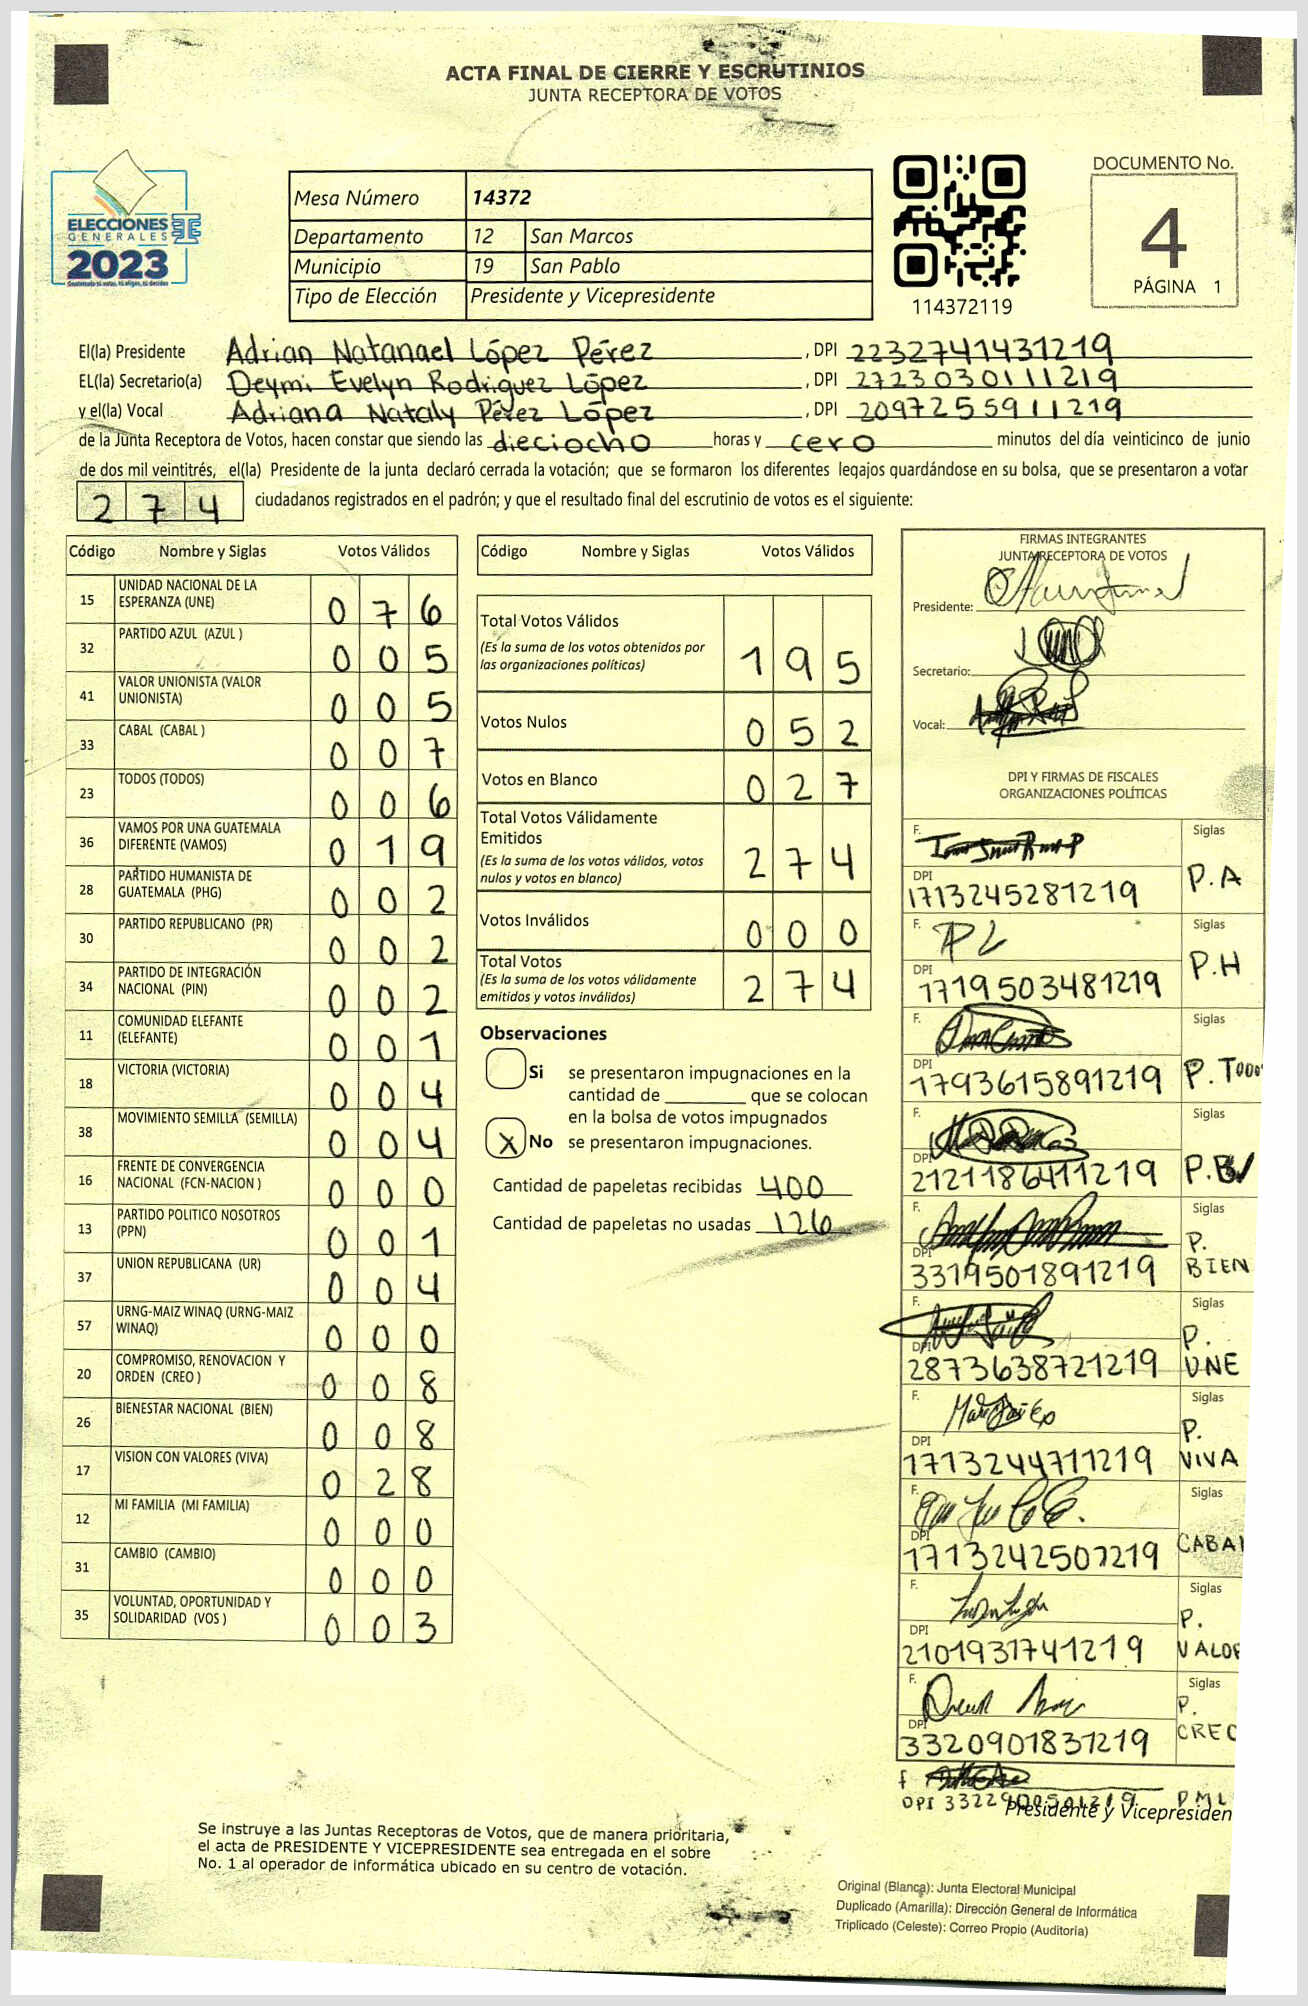 ACTA FINAL DE CIERRE Y ESCRUTINIOS
JUNTA RECEPTORA DE VOTOS
ELECCIONES
GENERALES
2023
Guatemala tú votas, tú eliges, tú decides
Mesa Número 14372
Departamento 12 San Marcos
Municipio 19 San Pablo
Tipo de Elección Presidente y Vicepresidente
114372119
DOCUMENTO No.
4
PÁGINA 1
El(la) Presidente Adrian Natanael López Pérez , DPI 2232741431219
EL(la) Secretario(a) Deymi Evelyn Rodriguez López , DPI 2723030111219
y el(la) Vocal Adriana Nataly Pérez López , DPI 2097255911219
de la Junta Receptora de Votos, hacen constar que siendo las dieciocho horas y cero minutos del día veinticinco de junio
de dos mil veintitrés, el(la) Presidente de la junta declaró cerrada la votación; que se formaron los diferentes legajos quardándose en su bolsa, que se presentaron a votar
274 ciudadanos registrados en el padrón; y que el resultado final del escrutinio de votos es el siguiente:
Código Nombre y Siglas Votos Válidos
15 UNIDAD NACIONAL DE LA
ESPERANZA (UNE) 076
32 PARTIDO AZUL (AZUL ) 005
41 VALOR UNIONISTA (VALOR
UNIONISTA) 005
33 CABAL (CABAL ) 007
23 TODOS (TODOS) 006
36 VAMOS POR UNA GUATEMALA
DIFERENTE (VAMOS) 019
28 PARTIDO HUMANISTA DE
GUATEMALA (PHG) 002
30 PARTIDO REPUBLICANO (PR) 002
34 PARTIDO DE INTEGRACIÓN
NACIONAL (PIN) 002
11 COMUNIDAD ELEFANTE
(ELEFANTE) 001
18 VICTORIA (VICTORIA) 004
38 MOVIMIENTO SEMILLA (SEMILLA) 004
16 FRENTE DE CONVERGENCIA
NACIONAL (FCN-NACION ) 000
13 PARTIDO POLITICO NOSOTROS
(PPN) 001
37 UNION REPUBLICANA (UR) 004
57 URNG-MAIZ WINAQ (URNG-MAIZ
WINAQ) 000
20 COMPROMISO, RENOVACION Y
ORDEN (CREO ) 008
26 BIENESTAR NACIONAL (BIEN) 008
17 VISION CON VALORES (VIVA) 028
12 MI FAMILIA (MI FAMILIA) 000
31 CAMBIO (CAMBIO) 000
35 VOLUNTAD, OPORTUNIDAD Y
SOLIDARIDAD (VOS ) 003
Código Nombre y Siglas Votos Válidos
Total Votos Válidos
(Es la suma de los votos obtenidos por
las organizaciones políticas) 195
Votos Nulos 052
Votos en Blanco 027
Total Votos Válidamente
Emitidos
(Es la suma de los votos válidos, votos
nulos y votos en blanco) 274
Votos Inválidos 000
Total Votos
(Es la suma de los votos válidamente
emitidos y votos inválidos) 274
Observaciones
Si se presentaron impugnaciones en la
cantidad de ________ que se colocan
en la bolsa de votos impugnados
X No se presentaron impugnaciones.
Cantidad de papeletas recibidas 400
Cantidad de papeletas no usadas 126
FIRMAS INTEGRANTES
JUNTA RECEPTORA DE VOTOS
Presidente:
Secretario:
Vocal:
DPI Y FIRMAS DE FISCALES
ORGANIZACIONES POLÍTICAS
F. Siglas
DPI 1713245281219 P.A
F. Siglas
DPI 1719503481219 P.H
F. Siglas
DPI 1793615891219 P. TODO
F. Siglas
DPI 2121186411219
F. Siglas
DPI 3319501891219 P. BIEN
F. Siglas
DPI 2873638721219 P. UNE
F. Siglas
DPI 1713244711219 P. VIVA
F. Siglas
DPI 1713242507219 CABAL
F. Siglas
DPI 2101931741219 P. VALOR
F. Siglas
DPI 3320901831219 P. CREO
F
DPI
Presidente y Vicepresiden
Se instruye a las Juntas Receptoras de Votos, que de manera prioritaria,
el acta de PRESIDENTE Y VICEPRESIDENTE sea entregada en el sobre
No. 1 al operador de informática ubicado en su centro de votación.
Original (Blanca): Junta Electoral Municipal
Duplicado (Amarilla): Dirección General de Informática
Triplicado (Celeste): Correo Propio (Auditoría)